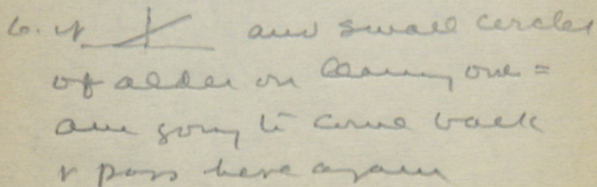 6. if and small circles
of alder on leaning one =
am going to come back
& pass here again